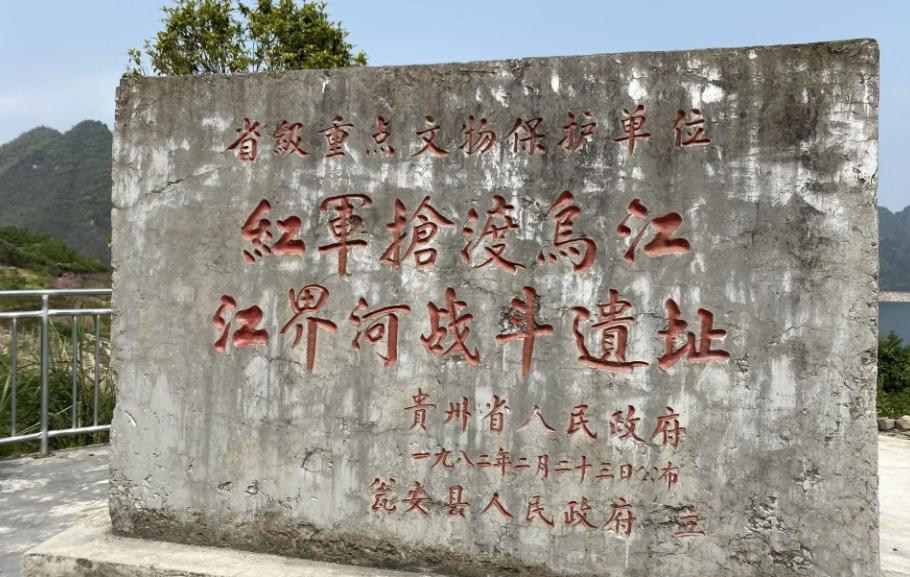 省级重点文物保护单位
紅軍搶渡烏江
江界河战斗遺址
貴州省人民政府
一九八二年二月二十三日公布
瓮安县人民政府 立